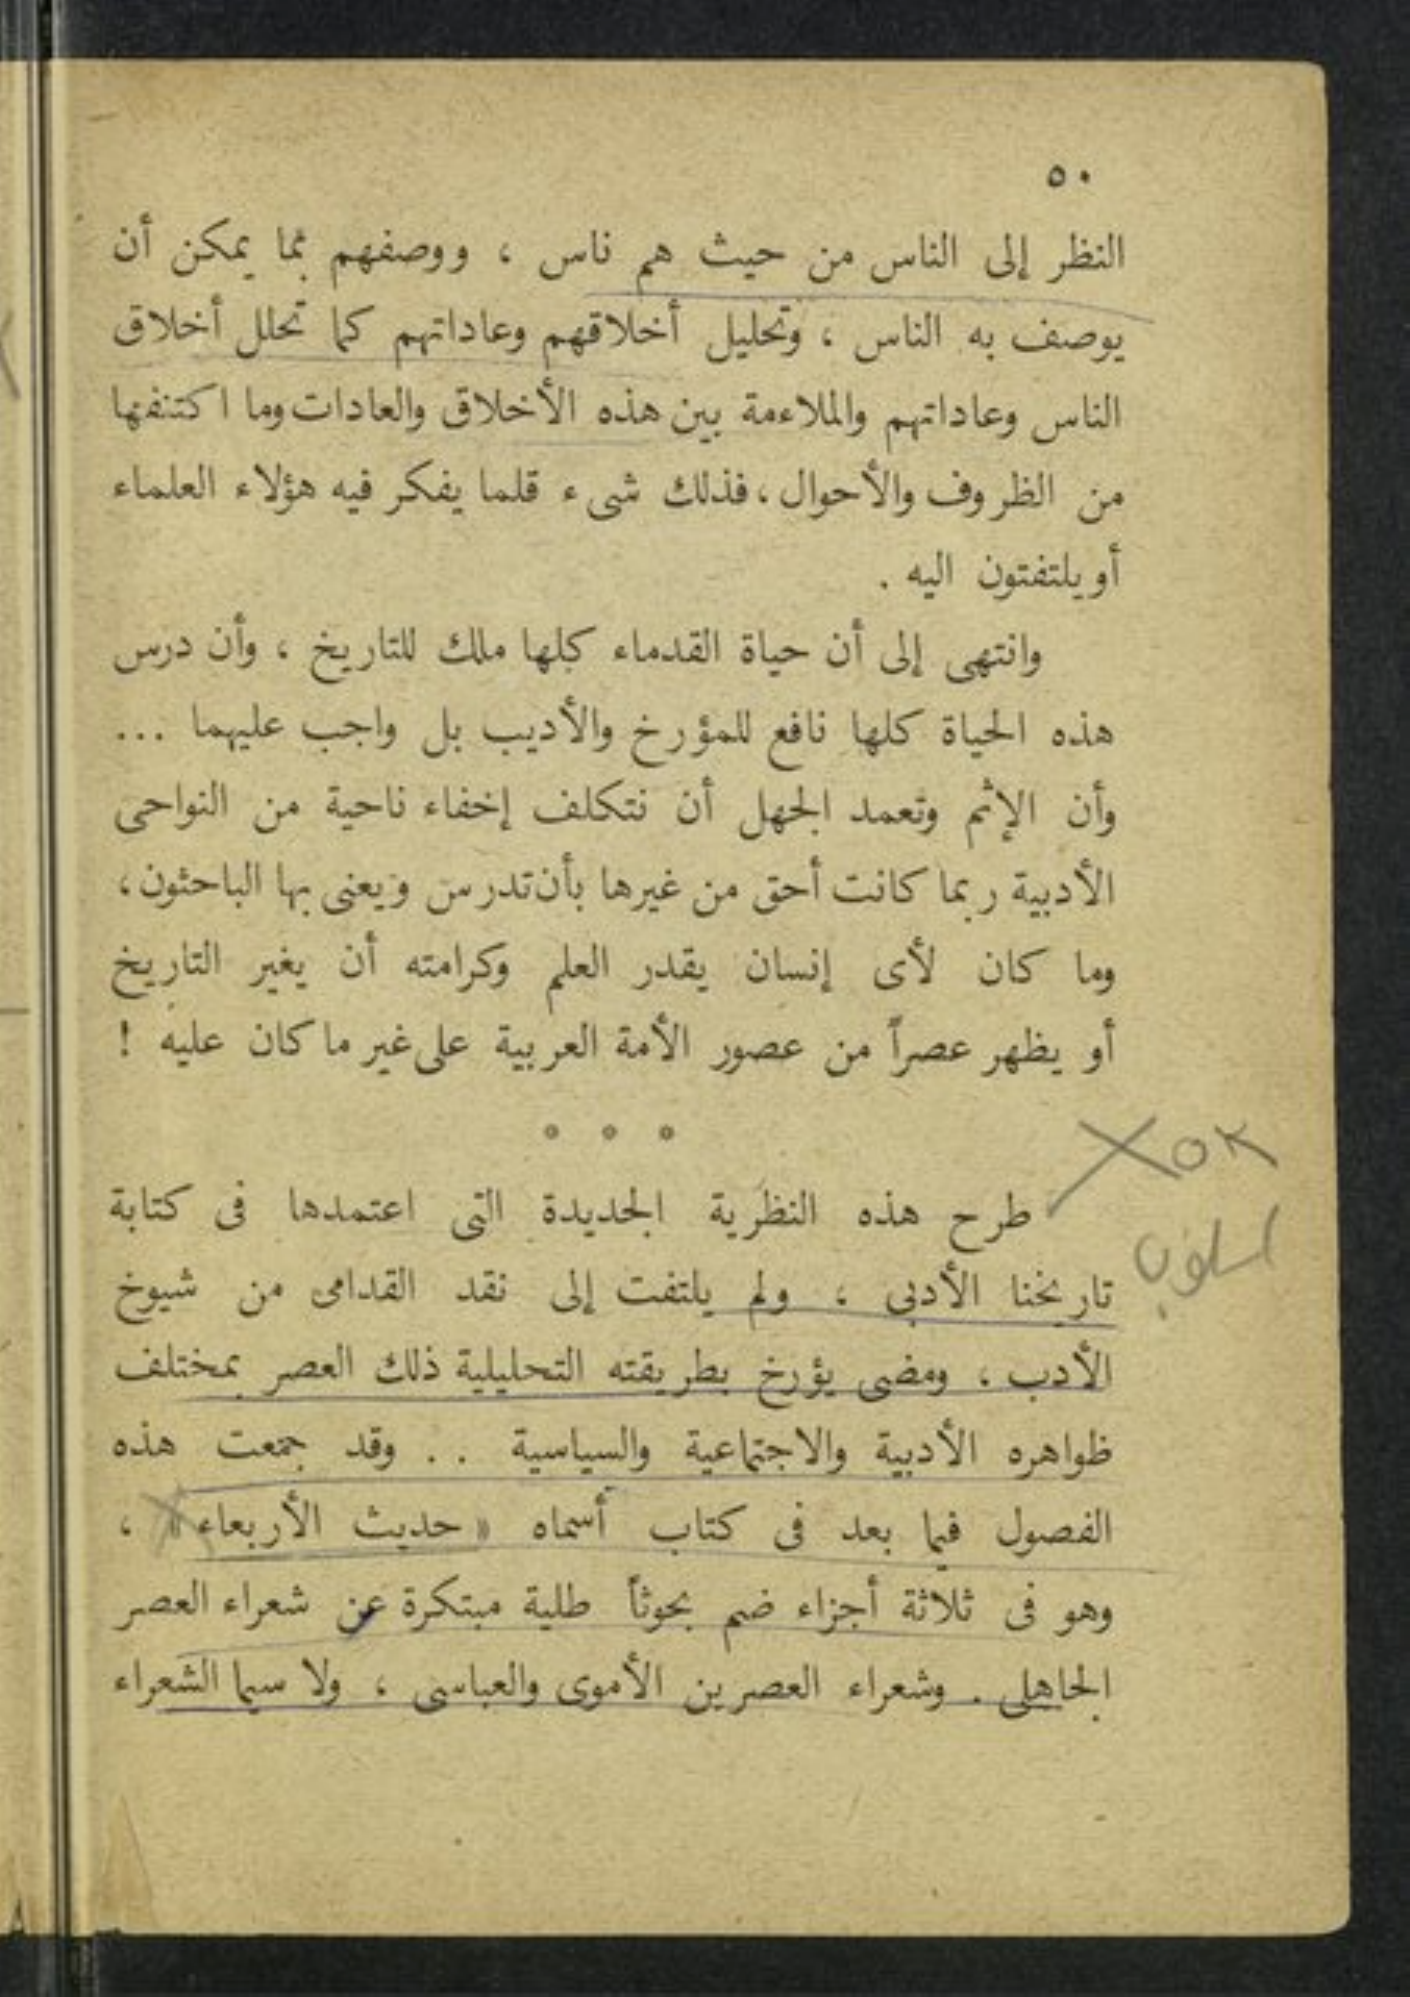 ٥٠
النظر إلى الناس من حيث هم ناس ، ووصفهم بما يمكن أن
يوصف به الناس ، وتحليل أخلاقهم وعاداتهم كما تحلل أخلاق
الناس وعاداتهم والملاءمة بين هذه الأخلاق والعادات وما اكتنفها
من الظروف والأحوال ، فذلك شىء قلما يفكر فيه هؤلاء العلماء
أو يلتفتون اليه .
وانتهى إلى أن حياة القدماء كلها ملك للتاريخ ، وأن درس
هذه الحياة كلها نافع للمؤرخ والأديب بل واجب عليهما ...
وأن الإثم وتعمد الجهل أن نتكلف إخفاء ناحية من النواحى
الأدبية ربما كانت أحق من غيرها بأن تدرس ويعنى بها الباحثون ،
وما كان لأى إنسان يقدر العلم وكرامته أن يغير التاريخ
أو يظهر عصراً من عصور الأمة العربية على غير ما كان عليه !
XOK
طرح هذه النظرية الجديدة التى اعتمدها فى كتابة
اسلوب
تاريخنا الأدبى ، ولم يلتفت إلى نقد القدامى من شيوخ
الأدب ، ومضى يؤرخ بطريقته التحليلية ذلك العصر بمختلف
ظواهره الأدبية والاجتماعية والسياسية . . وقد جمعت هذه
الفصول فيما بعد فى كتاب أسماه « حديث الأربعاء » ،
وهو فى ثلاثة أجزاء ضم بحوثاً طلية مبتكرة عن شعراء العصر
الجاهلى . وشعراء العصرين الأموى والعباسى ، ولا سيما الشعراء